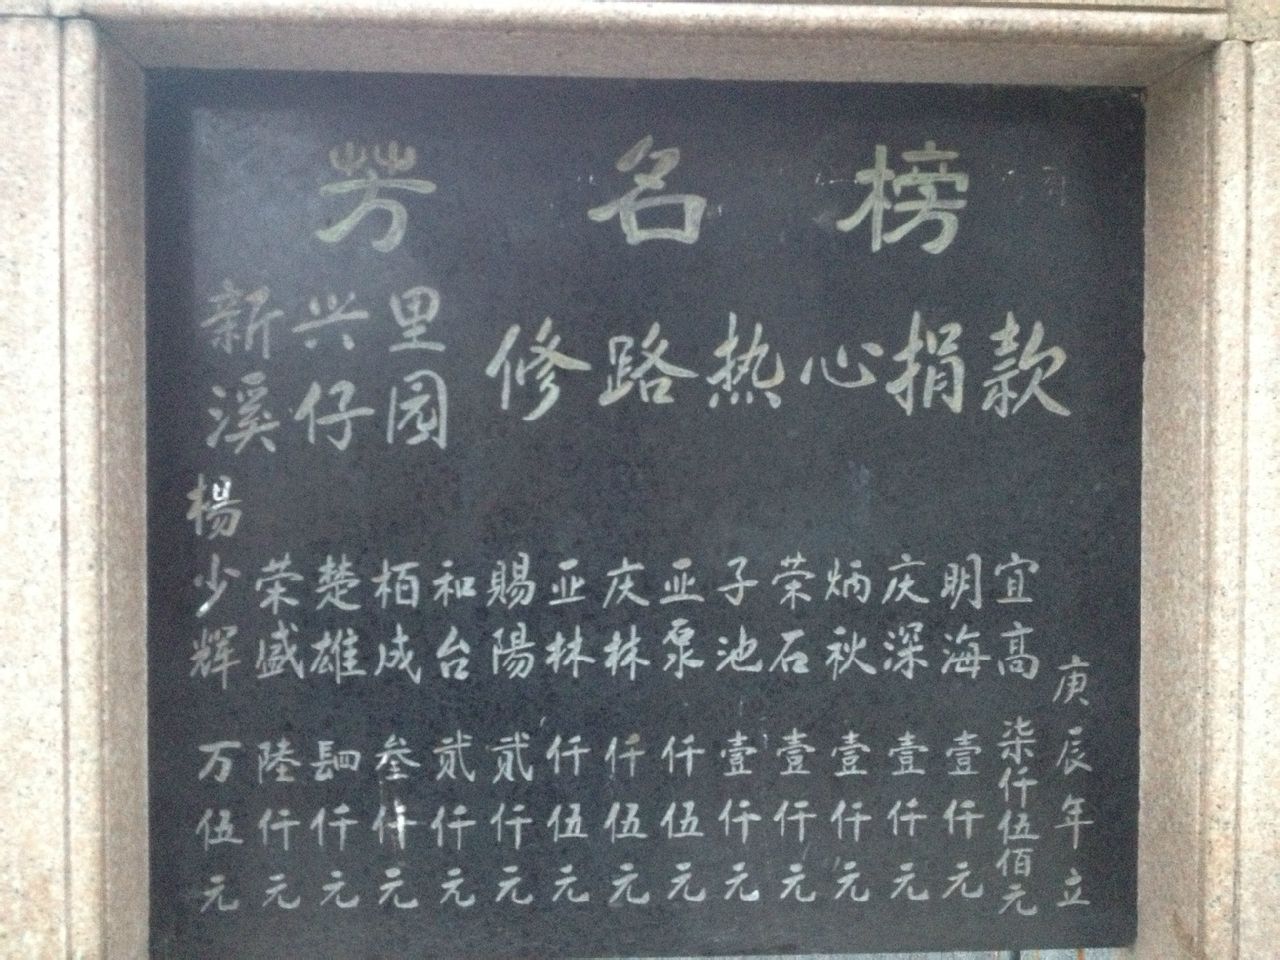 芳名榜
新兴里
溪仔园
修路热心捐款
楊少辉 万伍元
荣盛 陸仟元
楚雄 肆仟元
栢成 叁仟元
和台 贰仟元
賜陽 贰仟元
亚林 仟伍元
庆林 仟伍元
亚泉 仟伍元
子池 壹仟元
荣石 壹仟元
炳秋 壹仟元
庆深 壹仟元
明海 壹仟元
宜高 柒仟伍佰元
庚辰年立